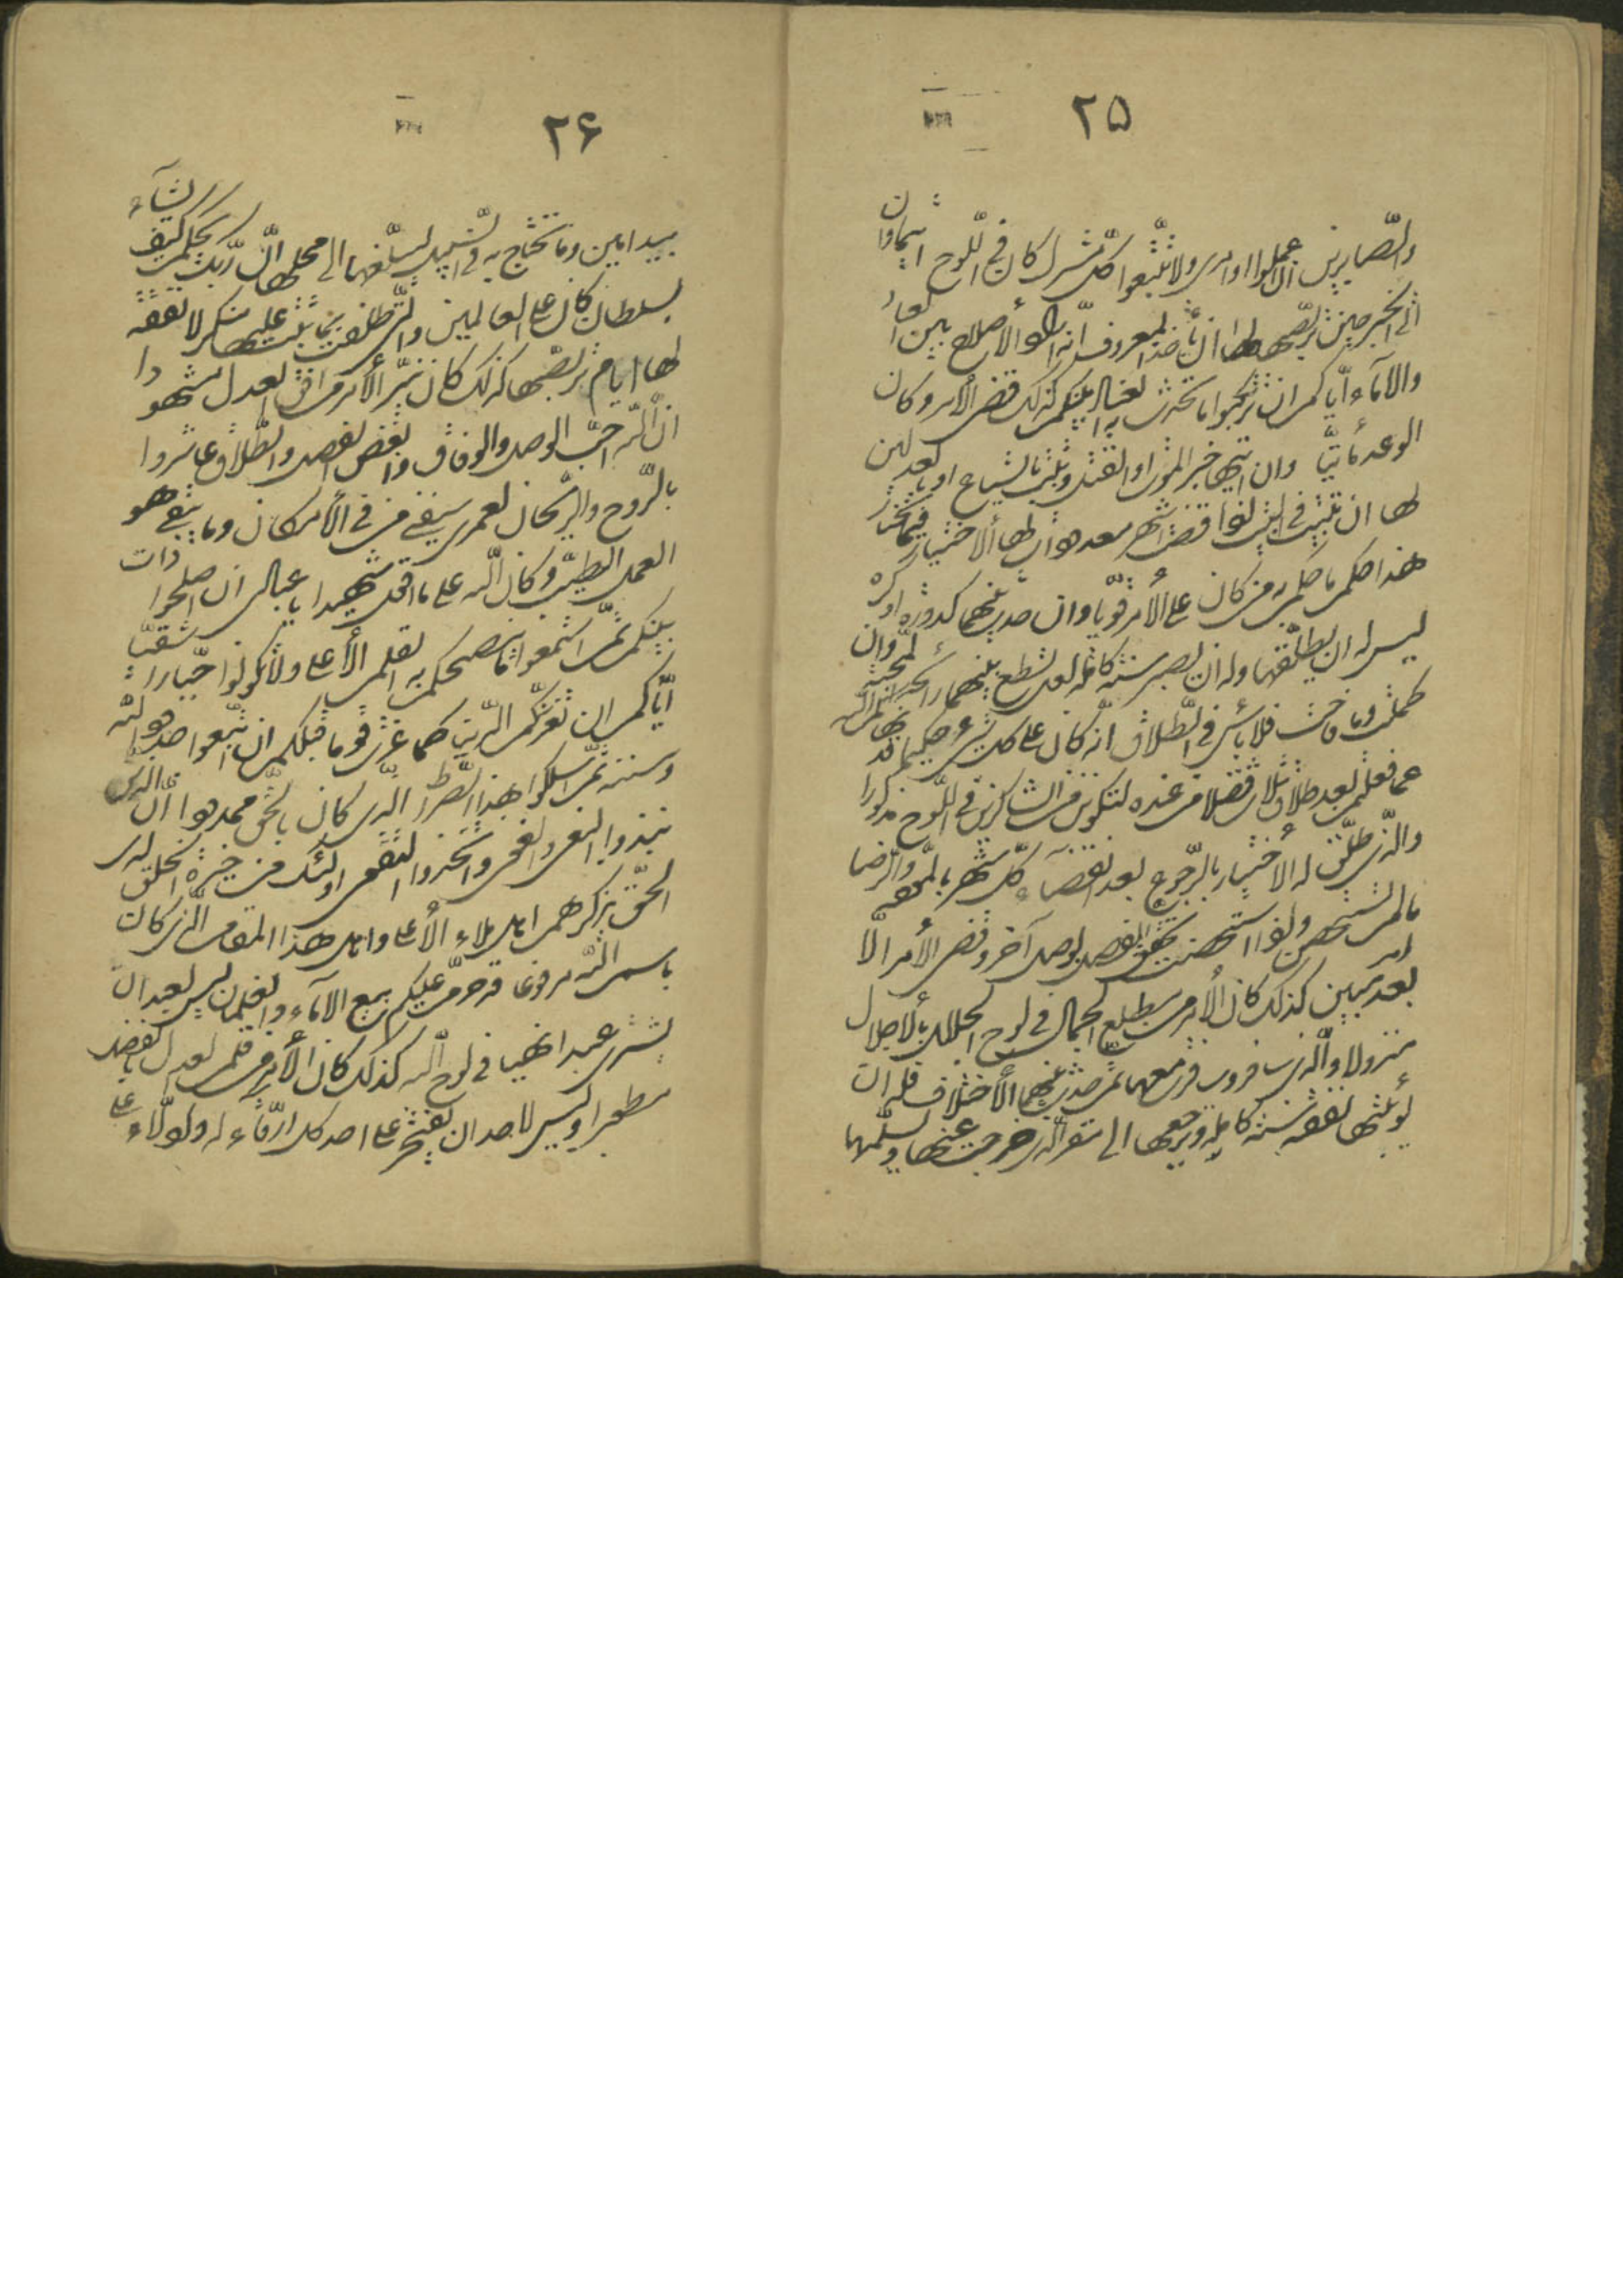 ٢٥
والصّابرين ان اعملوا اوامری ولا تتّبعوا كلّ مشرك كان فی اللّوح اثيما وان
اتی الخبر حين تربّصها لها ان تأخذ المعروف انّه اراد الأصلاح بين العباد
والأمآء ايّاكم ان ترتكبوا ما تحدث به العناد بينكم كذلك قضی الأمر وكان
الوعد مأتيّا وان اتيها خبر الموت او القتل وثبت بالشياع او بالعدلين
لها ان تلبث فی البيت اذا مضت اشهر معدودات لها الأختيار فيما تختار
هذا ما حكم به من كان علی الأمر قويّا وان حدث بينهما كدورة او كره
ليس له ان يطلّقها وله ان يصبر سنة كاملة لعلّ تسطع بينهما رائحة المحبّة وان
كملت وما فاحت فلا بأس فی الطّلاق انّه كان علی كلّ شیء حكيما قد نهاكم اللّه
عمّا عملتم بعد طلقات ثلاث فضلا من عنده لتكونوا من الشّاكرين فی اللّوح مذكورا
والّذی طلّق له الأختيار بالرّجوع بعد انقضآء كلّ شهر بالمودّة والرّضا
ما لم تستحصن واذا استحصنت تحقّق الفصل بوصل آخر وقضی الأمر الّا
بعد امر مبين كذلك كان الأمر من مطلع الجمال فی لوح الجلال بالأجلال
منزولا والّذی سافر وسافرت معه ثمّ حدث بينهما الأختلاف فله ان
يؤتيها نفقة سنة كاملة ويرجعها الی المقرّ الّذی خرجت عنها او يسلّمها
٢۶
بيد امين وما تحتاج به فی السّبيل ليبلّغها الی محلّها انّ ربّك يحكم كيف يشآء
بسلطان كان علی العالمين محيطا والّتی طلّقت بما ثبت عليها منكر لا نفقة
لها ايّام تربّصها كذلك كان نيّر الأمر من افق العدل مشهودا
انّ اللّه احبّ الوصل والوفاق وابغض الفصل والطّلاق عاشروا
بالرّوح والرّيحان لعمری سيفنی من فی الأمكان وما يبقی هو
العمل الطّيّب وكان اللّه علی ما اقول شهيدا يا عبادی ان اصلحوا ذات
بينكم ثمّ استمعوا ما ينصحكم به القلم الأعلی ولا تتّبعوا جبّارا شقيّا
ايّاكم ان تغرّنّكم الدّنيا كما غرّت قوما قبلكم ان اتّبعوا حدود اللّه
وسننه ثمّ اسلكوا هذا الصّراط الّذی كان بالحقّ ممدودا انّ الّذين
نبذوا البغی والغوی واتّخذوا التّقوی اولئك من خيرة الخلق لدی
الحقّ يذكرهم الملأ الأعلی واهل هذا المقام الّذی كان
باسم اللّه مرفوعا قد حرّم عليكم بيع الأمآء والغلمان ليس لعبد ان
يشتری عبدا نهيا فی لوح اللّه كذلك كان الأمر من قلم العدل بالفضل
مسطورا وليس لأحد ان يفتخر علی احد كلّ ارقّآء له وادلّآء علی